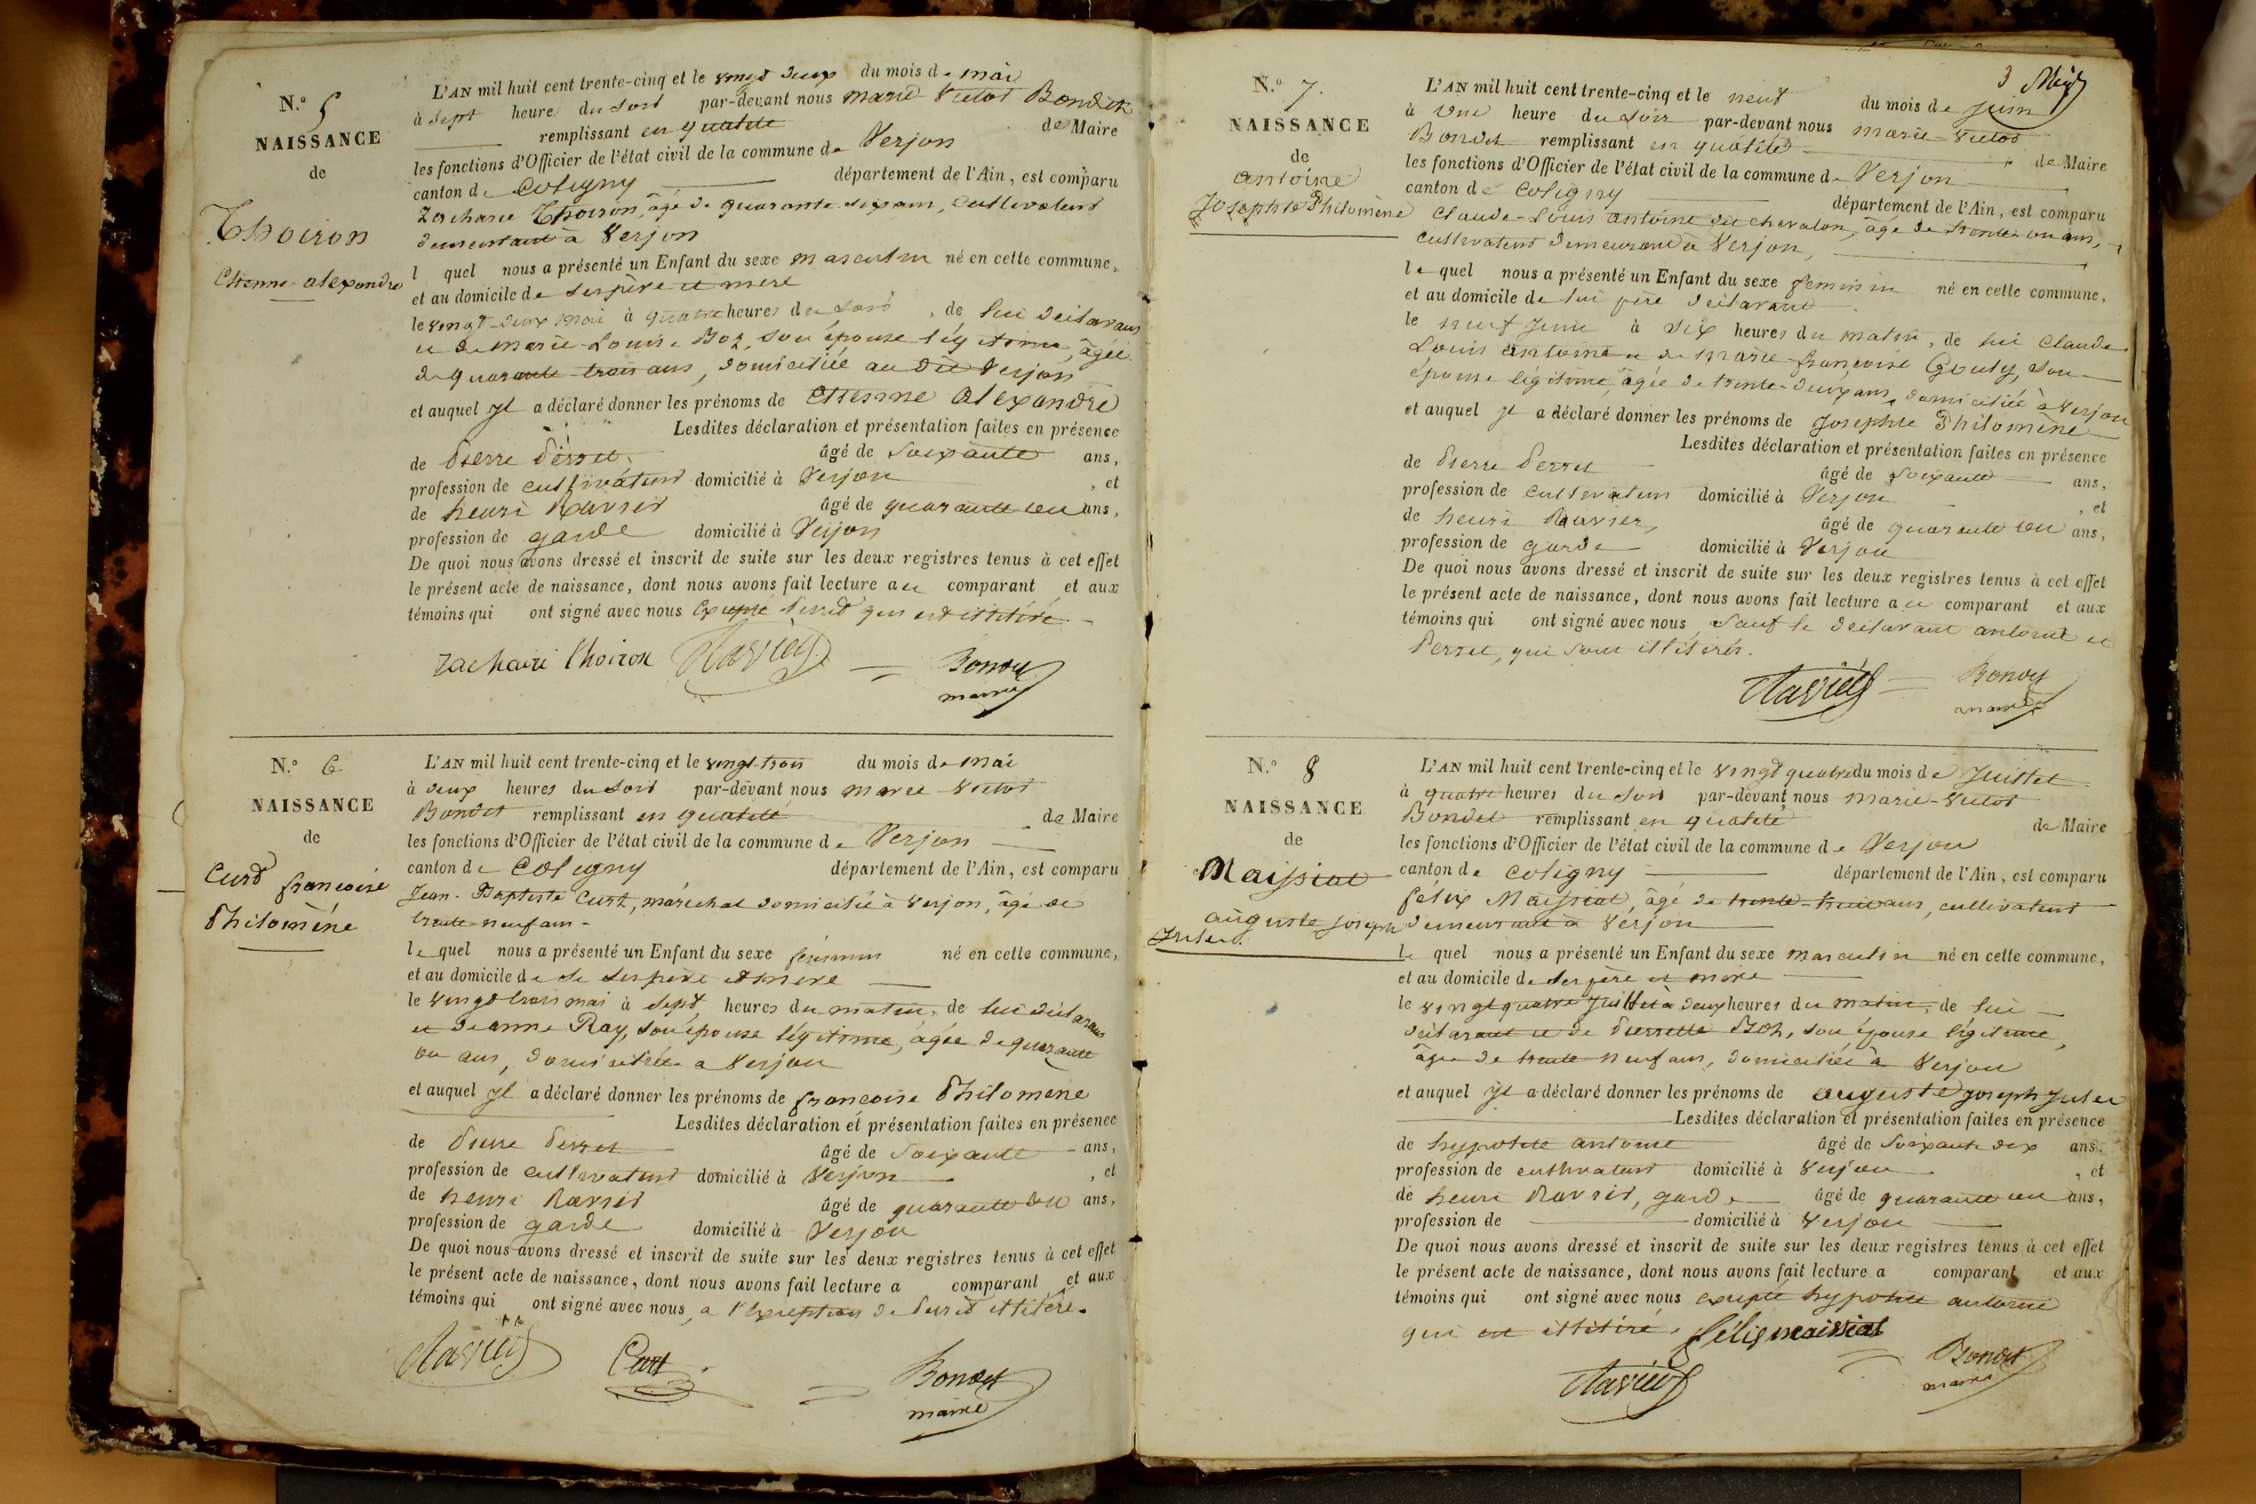 N.° 5
NAISSANCE
de
Thoiron
Etienne alexandre
L'AN mil huit cent trente-cinq et le vingt deux du mois de mai
à sept heure du soir par-devant nous marie Victor Bondet
remplissant en qualité de Maire
les fonctions d'Officier de l'état civil de la commune de Verjon
canton de Coligny département de l'Ain, est comparu
Zacharie Thoiron, âgé de quarante six ans, cultivateur
demeurant à Verjon
l quel nous a présenté un Enfant du sexe masculin né en cette commune,
et au domicile de ses père et mere
le vingt-deux mai à quatre heures du soir, de lui déclarant
et de marie Louise Boz, son épouse légitime, âgée
de quarante trois ans, domiciliée au dit Verjon
et auquel yl a déclaré donner les prénoms de Etienne alexandre
Lesdites déclaration et présentation faites en présence
de Pierre Perret âgé de soixante ans,
profession de cultivateur domicilié à Verjon, et
de henri Ravier âgé de quarante un ans,
profession de garde domicilié à Verjon
De quoi nous avons dressé et inscrit de suite sur les deux registres tenus à cet effet
le présent acte de naissance, dont nous avons fait lecture au comparant et aux
témoins qui ont signé avec nous Excepté Perret qui est illitéré
Zacharie thoiron Ravier Bondet
maire
N.° 6
NAISSANCE
de
Curt françoise
Philomène
L'AN mil huit cent trente-cinq et le vingt-trois du mois de mai
à deux heures du soir par-devant nous marie Victor
Bondet remplissant en qualité de Maire
les fonctions d'Officier de l'état civil de la commune de Verjon
canton de Coligny département de l'Ain, est comparu
Jean-Baptiste Curt, maréchal domicilié à Verjon, âgé de
trente neuf ans-
le quel nous a présenté un Enfant du sexe féminin né en cette commune,
et au domicile de de ses père et mere
le vingt trois mai à sept heures du matin, de lui déclarant
et de anne Ray, son épouse légitime, âgée de quarante
un ans, domiciliée a Verjon
et auquel yl a déclaré donner les prénoms de françoise Philomene
Lesdites déclaration et présentation faites en présence
de Pierre Perret âgé de soixante ans,
profession de cultivateur domicilié à Verjon, et
de henri Ravier âgé de quarante un ans,
profession de garde domicilié à Verjon
De quoi nous avons dressé et inscrit de suite sur les deux registres tenus à cet effet
le présent acte de naissance, dont nous avons fait lecture a comparant et aux
témoins qui ont signé avec nous, a l'exception de Perret illitéré.
Ravier Curt Bondet
maire
3
N.° 7.
NAISSANCE
de
antoine
Josephte Philomène
L'AN mil huit cent trente-cinq et le neuf du mois de juin
à une heure du soir par-devant nous marie-Victor
Bondet remplissant en qualité de Maire
les fonctions d'Officier de l'état civil de la commune de Verjon
canton de Coligny département de l'Ain, est comparu
Claude-Louis antoine dit chevalon, âgé de trente un ans,
cultivateur demeurand à Verjon,
le quel nous a présenté un Enfant du sexe feminin né en cette commune,
et au domicile de lui père déclarant
le neuf juin à six heures du matin, de lui Claude
Louis antoine et de marie françoise Gouly, son
épouse légitime, âgée de trente-deux ans, domiciliée à Verjon
et auquel yl a déclaré donner les prénoms de Josephte Philomène
Lesdites déclaration et présentation faites en présence
de Pierre Perret âgé de soixante ans,
profession de cultivateur domicilié à Verjon, et
de henri Ravier, âgé de quarante un ans,
profession de garde domicilié à Verjon
De quoi nous avons dressé et inscrit de suite sur les deux registres tenus à cet effet
le présent acte de naissance, dont nous avons fait lecture au comparant et aux
témoins qui ont signé avec nous, sauf le déclarant antoine et
Perret, qui sont illitérés.
Ravier Bondet
maire
N.° 8
NAISSANCE
de
Maissiat
auguste joseph
Jules
L'AN mil huit cent trente-cinq et le vingt quatre du mois de Juillet
à quatre heures du soir par-devant nous marie-Victor
Bondet remplissant en qualité de Maire
les fonctions d'Officier de l'état civil de la commune de Verjon
canton de Coligny département de l'Ain, est comparu
félix Maissiat, âgé de ans, cultivateur
demeurant à Verjon
le quel nous a présenté un Enfant du sexe masculin né en cette commune,
et au domicile de ses père et mere
le vingt quatre Juillet à deux heures du matin, de lui
déclarant et de Pierrette Boz, son épouse légitime,
âgée de trente neuf ans, domiciliée à Verjon
et auquel yl a déclaré donner les prénoms de auguste joseph Jules
Lesdites déclaration et présentation faites en présence
de hypolite antoine âgé de soixante dix ans,
profession de cultivateur domicilié à Verjon, et
de henri Ravier, garde âgé de quarante un ans,
profession de domicilié à Verjon
De quoi nous avons dressé et inscrit de suite sur les deux registres tenus à cet effet
le présent acte de naissance, dont nous avons fait lecture a comparant et aux
témoins qui ont signé avec nous excepté hypolite antoine
qui est illitéré. félix maissiat
Ravier Bondet
maire